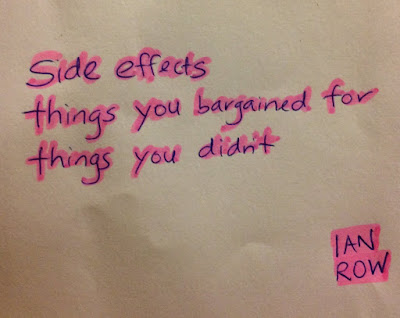 Side effects
things you bargained for
things you didn't
IAN
ROW